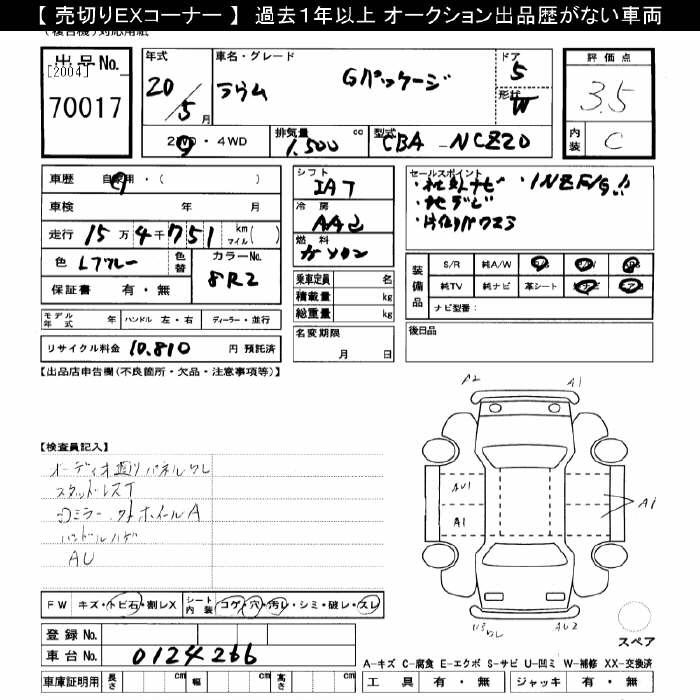 【 売切りEXコーナー 】 過去1年以上 オークション出品歴がない車両
(複合機)対応用紙
出品No. [2004] 70017
年式 20/5月
車名・グレード ラウム Gパッケージ
ドア 5
形状 W
評価点 3.5
内装 C
2WD・4WD
排気量 1,500 cc
型式 CBA - NCZ20
車歴 自家用・( )
車検 年 月
走行 15万4千751 km マイル( )
色 Lブルー 色替 カラーNo. 8R2
保証書 有・無
シフト IAT
冷房 AAC
燃料 ガソリン
乗車定員 名
積載量 kg
総重量 kg
名変期限 月 日
セールスポイント
・社外ナビ ・1NZ F/G!!
・地デジ
装備品 S/R 純A/W P/S P/W
純TV 純ナビ 革シート
ナビ型番:
後日品
モデル年式 年 ハンドル 左・右 ディーラー・並行
リサイクル料金 10,810 円 預託済
【出品店申告欄(不良箇所・欠品・注意事項等)】
A2 A1
【検査員記入】
オーディオ廻りパネルワレ
スタッドレスT
ミラー ホイールA
ハンドルハゲ
AU
AU1
A1
A1
AU2
FW キズ・トビ石・割レX シート内装 コゲ・穴・汚レ・シミ・破レ・スレ
スペア
登録No.
車台No. 0124266
A-キズ C-腐食 E-エクボ S-サビ U-凹ミ W-補修 XX-交換済
車庫証明用 長さ cm 幅 cm 高さ cm
工具 有・無 ジャッキ 有・無